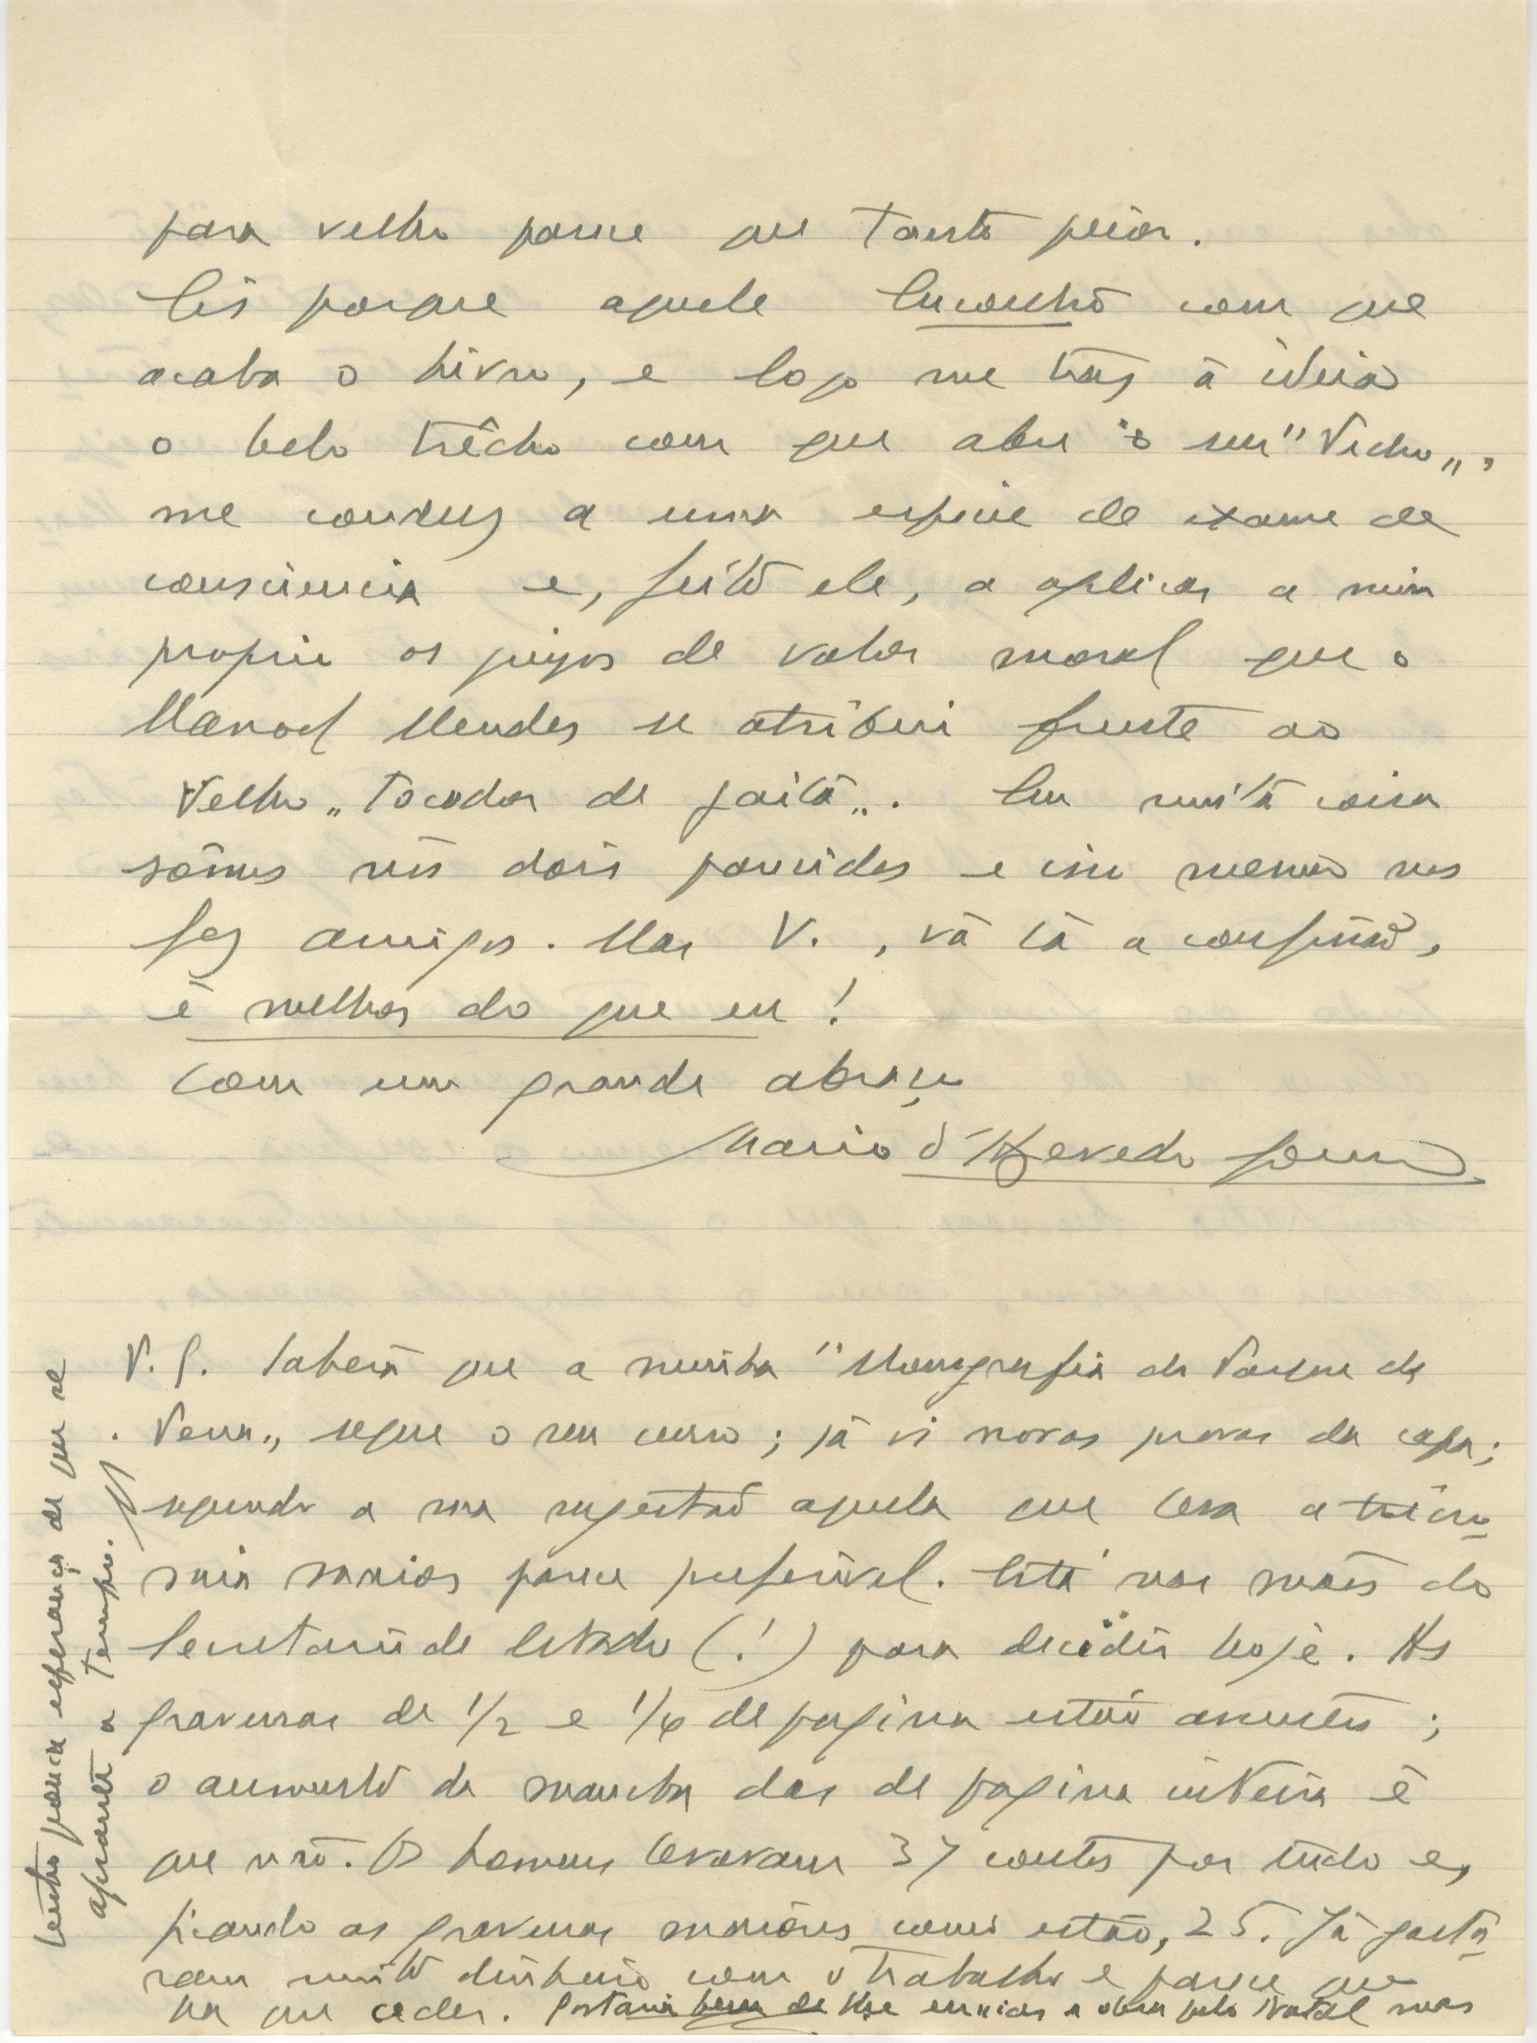 para velho parece que tanto peior.
Eis porque aquele Encontro com que
acaba o livro, e logo me traz á ideia
o belo trêcho com que abre o seu "Pedro",
me conduz a uma especie de exame de
consciencia e, feito ele, a aplicar a mim
proprio os juizos de valor moral que o
Manoel Mendes se atribui frente ao
Velho "Tocador de gaita". Em muita coisa
sômos nós dois parecidos e isso mesmo nos
fez amigos. Mas V., vá lá a confissão,
é melhor do que eu!
Com um grande abraço
Mario d'Azevedo Gomes
P.S. Saberá que a minha "Monografia do Parque da
Pena", segue o seu curso; já vi novas provas da capa;
segundo a sua sugestão aquela que leva a tricro-
mia maior parece preferivel. Está nas mãos do
Secretario de Estado (!) para decidir hoje. As
gravuras de 1/2 e 1/4 de pagina estão assentes;
o aumento da mancha das de pagina inteira é
que não. Os homens levavam 37 contos por tudo e,
ficando as gravuras maiores como estão, 25. Já gasta-
ram muito dinheiro com o trabalho e parece que
ha que ceder. Gostaria bem de lhe enviar a obra pelo Natal mas
tenho pouca esperança de que se
apronte a tempo.